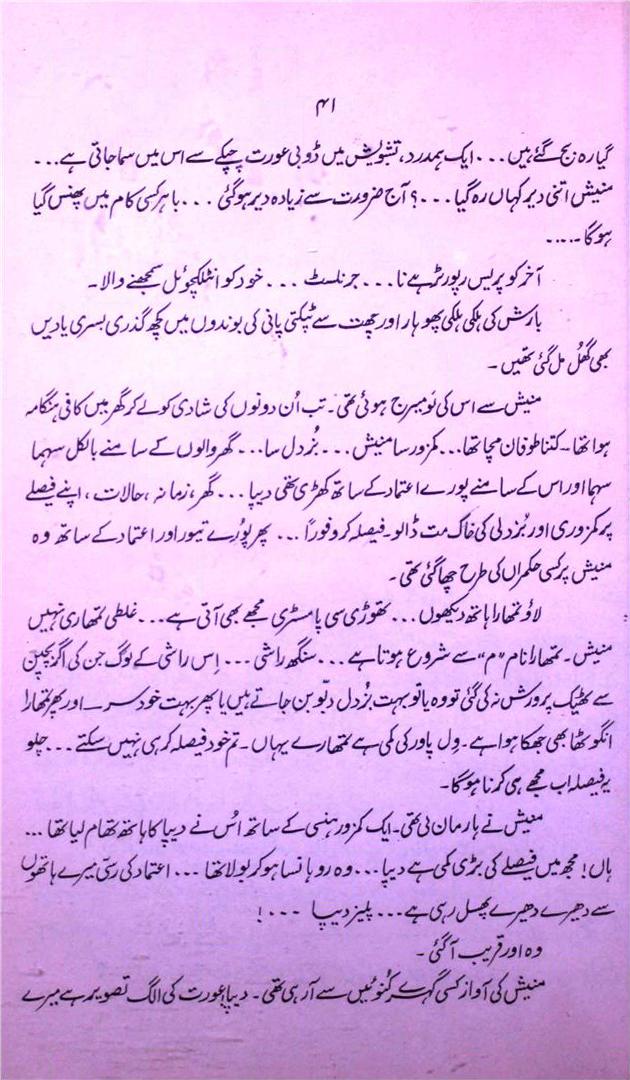 ۴۱
گیارہ بج گئے ہیں... ایک ہمدرد، تشویش میں ڈوبی عورت چپکے سے اس میں سما جاتی ہے...
منیش اتنی دیر کہاں رہ گیا...؟ آج ضرورت سے زیادہ دیر ہو گئی... باہر کسی کام میں پھنس گیا
ہوگا۔....
آخر کو پریس رپورٹر ہے نا... جرنلسٹ... خود کو انٹلکچوئل سمجھنے والا۔
بارش کی ہلکی ہلکی پھوہار اور چھت سے ٹپکتی پانی کی بوندوں میں کچھ گذری بسری یادیں
بھی گھُل مل گئی تھیں۔
منیش سے اس کی لَو میرج ہوئی تھی۔ تب اُن دونوں کی شادی کو لے کر گھر میں کافی ہنگامہ
ہوا تھا۔ کتنا طوفان مچا تھا... کمزور سا منیش... بُزدل سا... گھر والوں کے سامنے بالکل سہما
سہما اور اس کے سامنے پورے اعتماد کے ساتھ کھڑی تھی دیپا... گھر، زمانہ، حالات، اپنے فیصلے
پر کمزوری اور بُزدلی کی خاک مت ڈالو۔ فیصلہ کرو فوراً... پھر پُورے تیور اور اعتماد کے ساتھ وہ
منیش پر کسی حکمراں کی طرح چھا گئی تھی۔
لاؤ تمھارا ہاتھ دیکھوں... تھوڑی سی پامسٹری مجھے بھی آتی ہے... غلطی تمھاری نہیں
منیش۔ تمھارا نام ”م“ سے شروع ہوتا ہے... سنگھ راشی... اِس راشی کے لوگ جن کی اگر بچپن
سے ٹھیک پرورش نہ کی گئی تو وہ یا تو بہت بُزدل دبّو بن جاتے ہیں یا پھر بہت خود سر۔ اور پھر تمھارا
انگوٹھا بھی جھکا ہوا ہے۔ وِل پاور کی کمی ہے تمھارے یہاں۔ تم خود فیصلہ کر ہی نہیں سکتے... چلو
یہ فیصلہ اب مجھے ہی کرنا ہوگا۔
منیش نے ہار مان لی تھی۔ ایک کمزور ہنسی کے ساتھ اُس نے دیپا کا ہاتھ تھام لیا تھا...
ہاں! مجھ میں فیصلے کی بڑی کمی ہے دیپا... وہ روہانسا ہو کر بولا تھا... اعتماد کی رسّی میرے ہاتھوں
سے دھیرے دھیرے پھسل رہی ہے... پلیز دیپا ...!
وہ اور قریب آ گئی۔
منیش کی آواز کسی گہرے کنوئیں سے آ رہی تھی۔ دیپا! عورت کی الگ تصویر ہے میرے